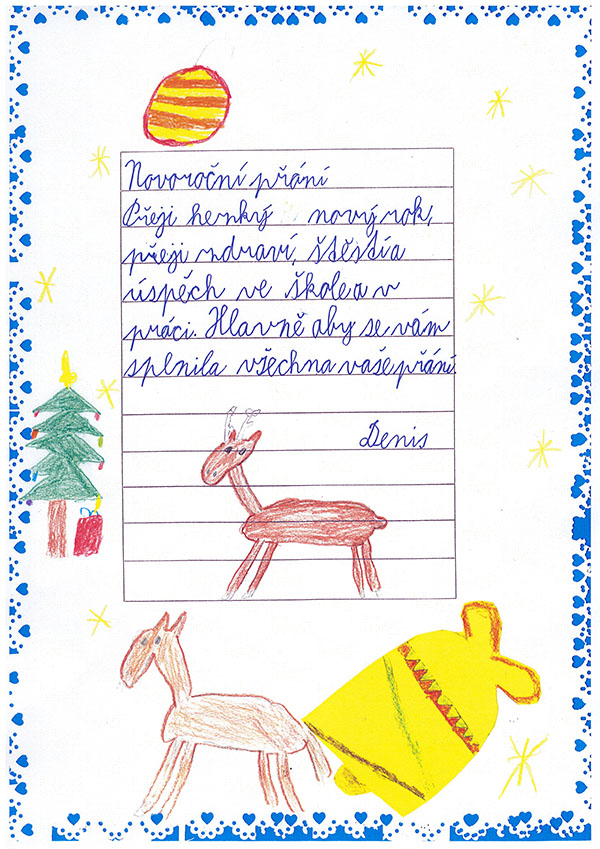 Novoroční přání
Přeji henký nový rok,
přeji zdraví, štěstí a
úspěch ve škole a v
práci. Hlavně aby se vám
splnila všechna vaše přání.
Denis